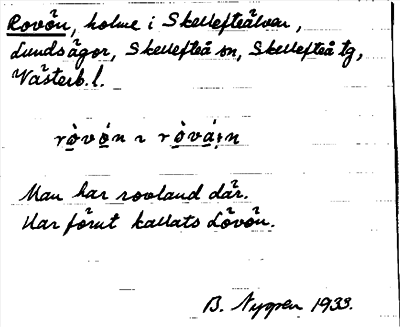 Rovön, holme i Skellefteälven,
Lundsägor, Skellefteå sn, Skellefteå tg,
Västerb.l.
Man har rovland där.
Har förut kallats Lövön.
B. Nyman 1933.